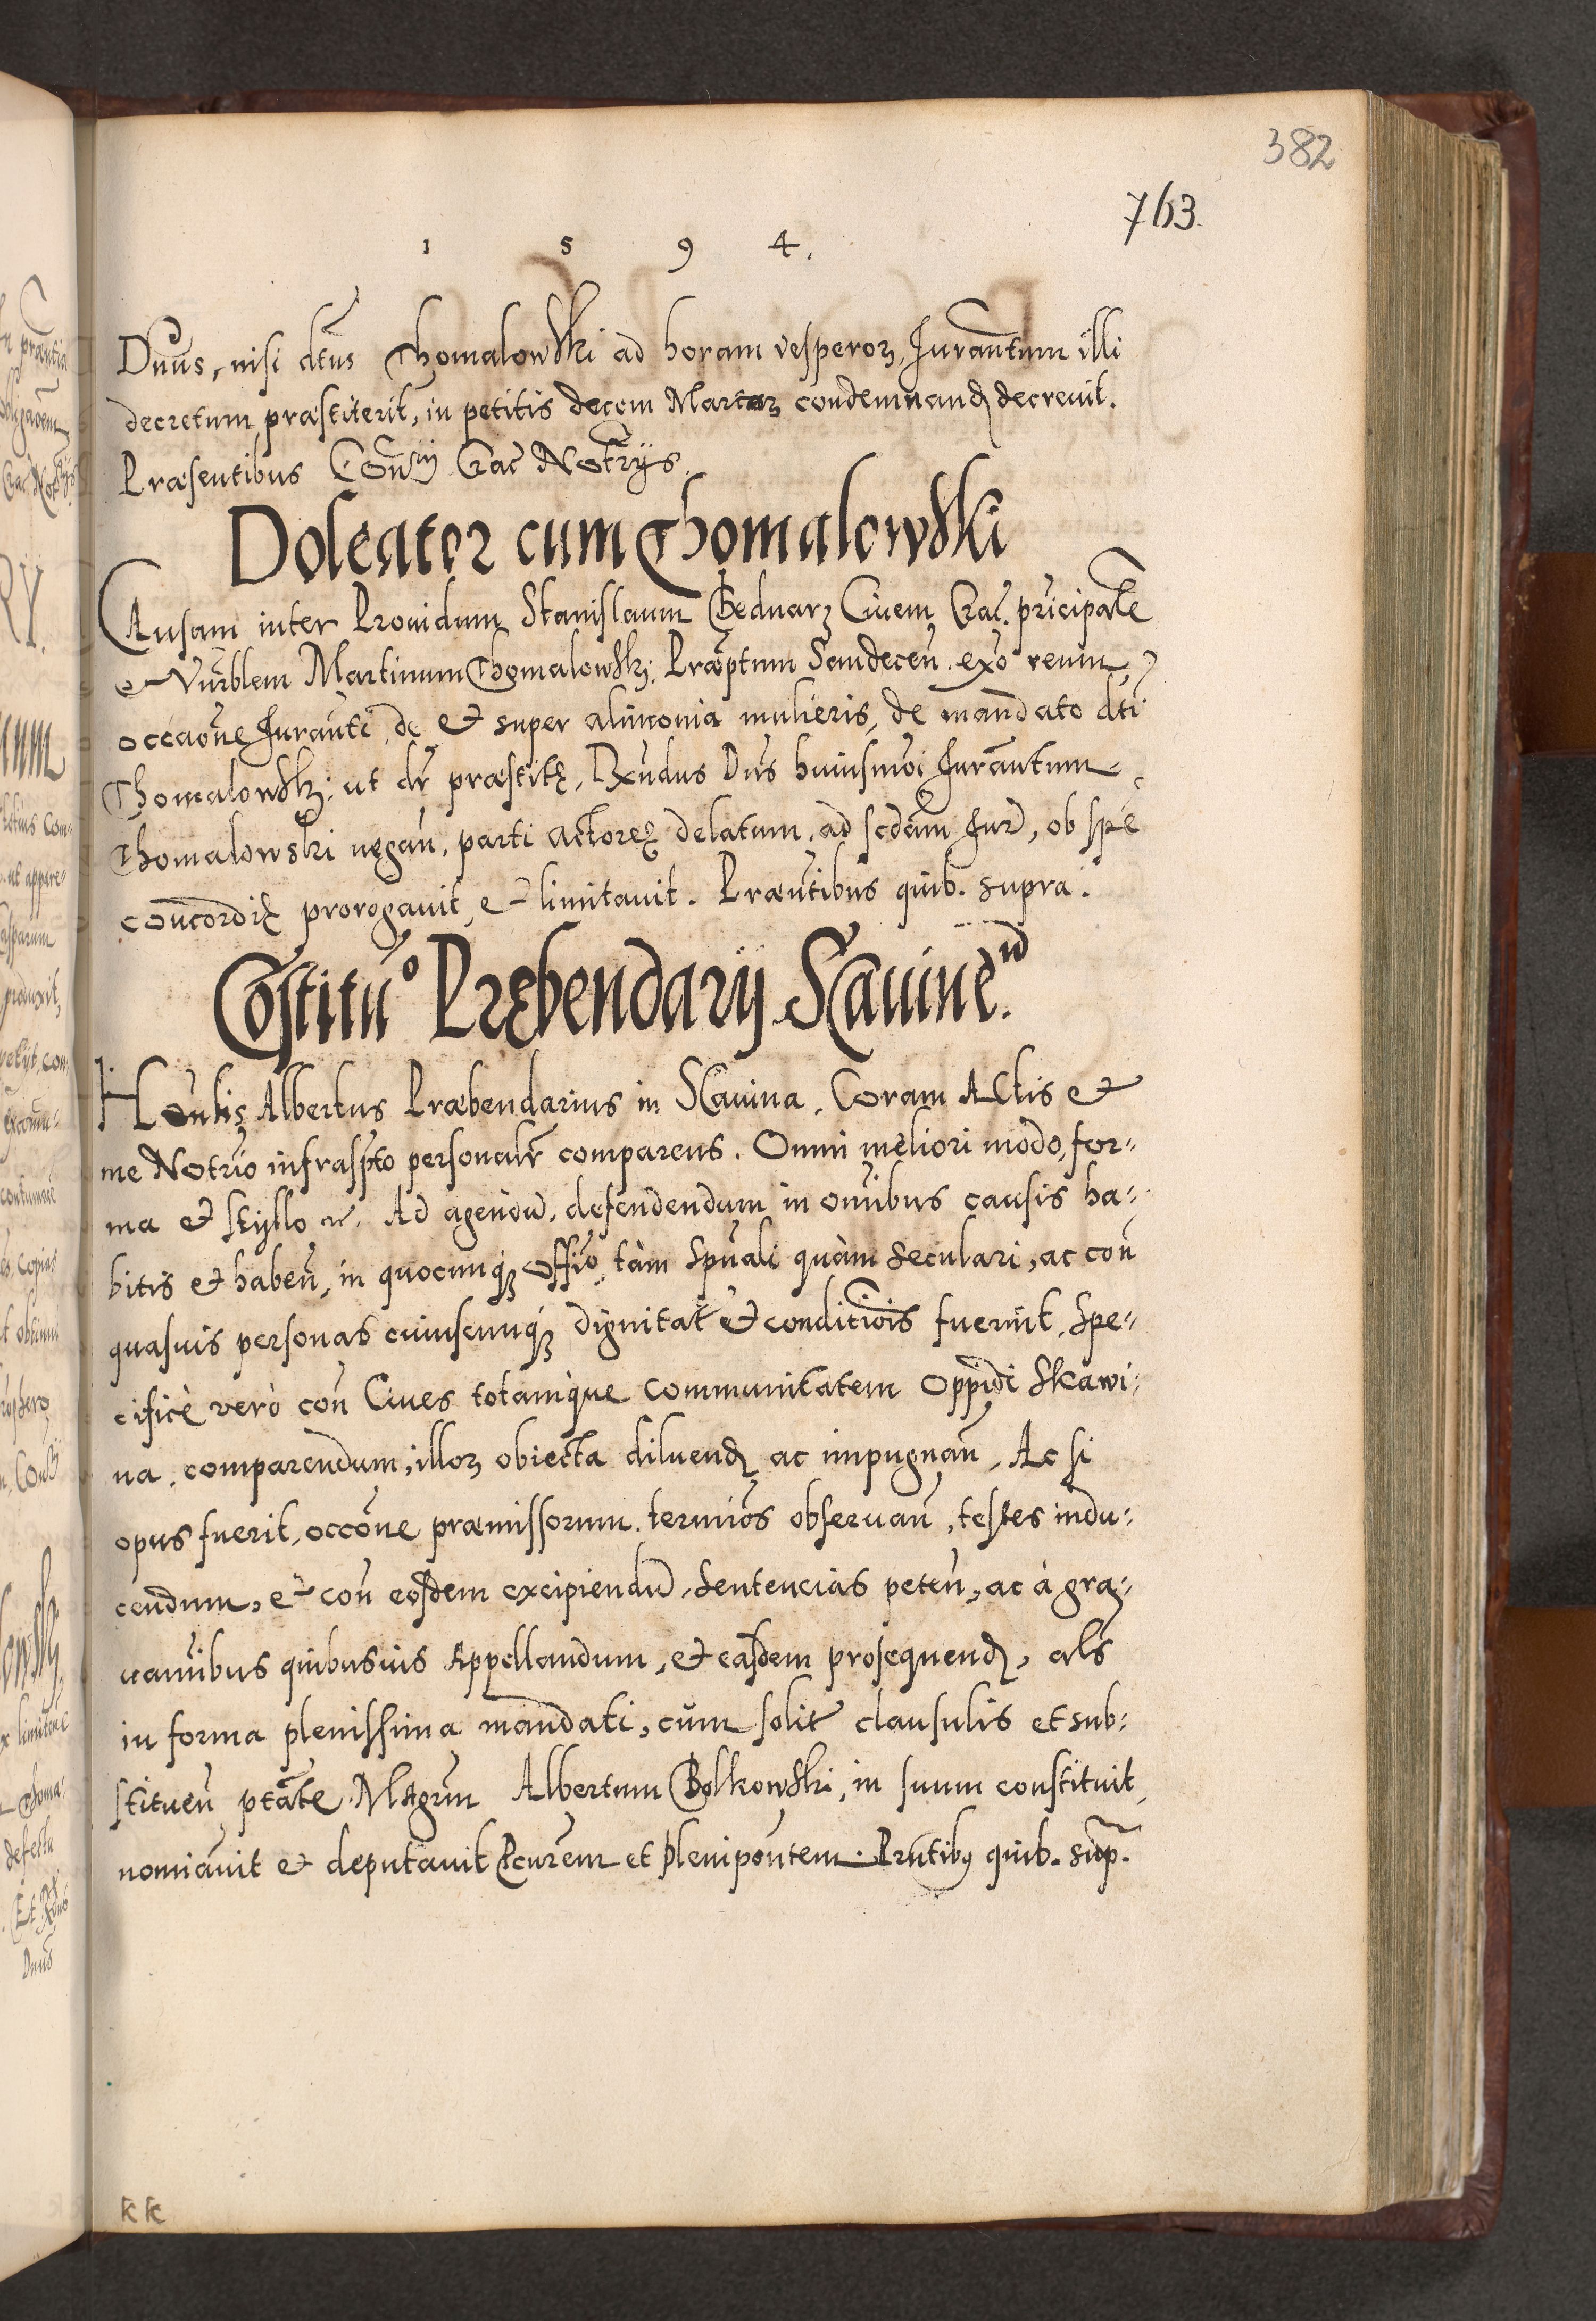 382
763.
1 5 9 4.
Dnus, nisi dtus Thomalowski ad horam vesperoꝝ, Juramtum illi
decretum præstiterit, in petitis decem Marcaꝝ condemnand decreuit.
Præsentibus Crac Notrijs.
Doleator cum Thomalowski
CAusam inter Prouidum Stanislaum Bednarz Ciuem Crac. pricipale
et Vnrblem Martinum Thomalowsk: Præptum Sendecen. exo reum,
occaone Juramti, de et super alimonia mulieris, de mandato dti
Thomalowsk: ut dr præstite, Rxndus Dns huiusmoi Juramtum
Thomalowski negan, parti actoreę delatum, ad scdam Jurd, ob spe
concordię prorogauit, et limitauit. Præntibus quib. supra.
Costitu° Præbendarij Scauine.
Honlis Albertus Præbendarius in Scauina, Coram Actis et
me Notrio infraspto personalr comparens. Omni meliori modo, for⸗
ma et styllo Ad agendu, defendendum in omibus causis ha⸗
bitis et haben, in quocunqꝫ offio, tàm Spuali quàm seculari, ac con
quasuis personas cuiuscunqꝫ dignitat et conditiois fuerint, Spe⸗
cificè verò con Ciues totamque communitatem Oppidi Skawi⸗
na, comparendum, illoꝝ obiecta diluend ac impugnan, Ac si
opus fuerit, occone præmissorum, termios obseruan, testes indu⸗
cendum, et con eosdem excipiendu, Sentencias peten, ac à gra⸗
uamibus quibusuis Appellandum, et easdem prosequend, als
in forma plenissima mandati, cum solit clausulis et sub⸗
stituen ptate Mgrum Albertum Bolkowski, in suum constituit,
nomiauit et deputauit Pcurem et plenipontem. Prntibꝰ quib. sup.
kk